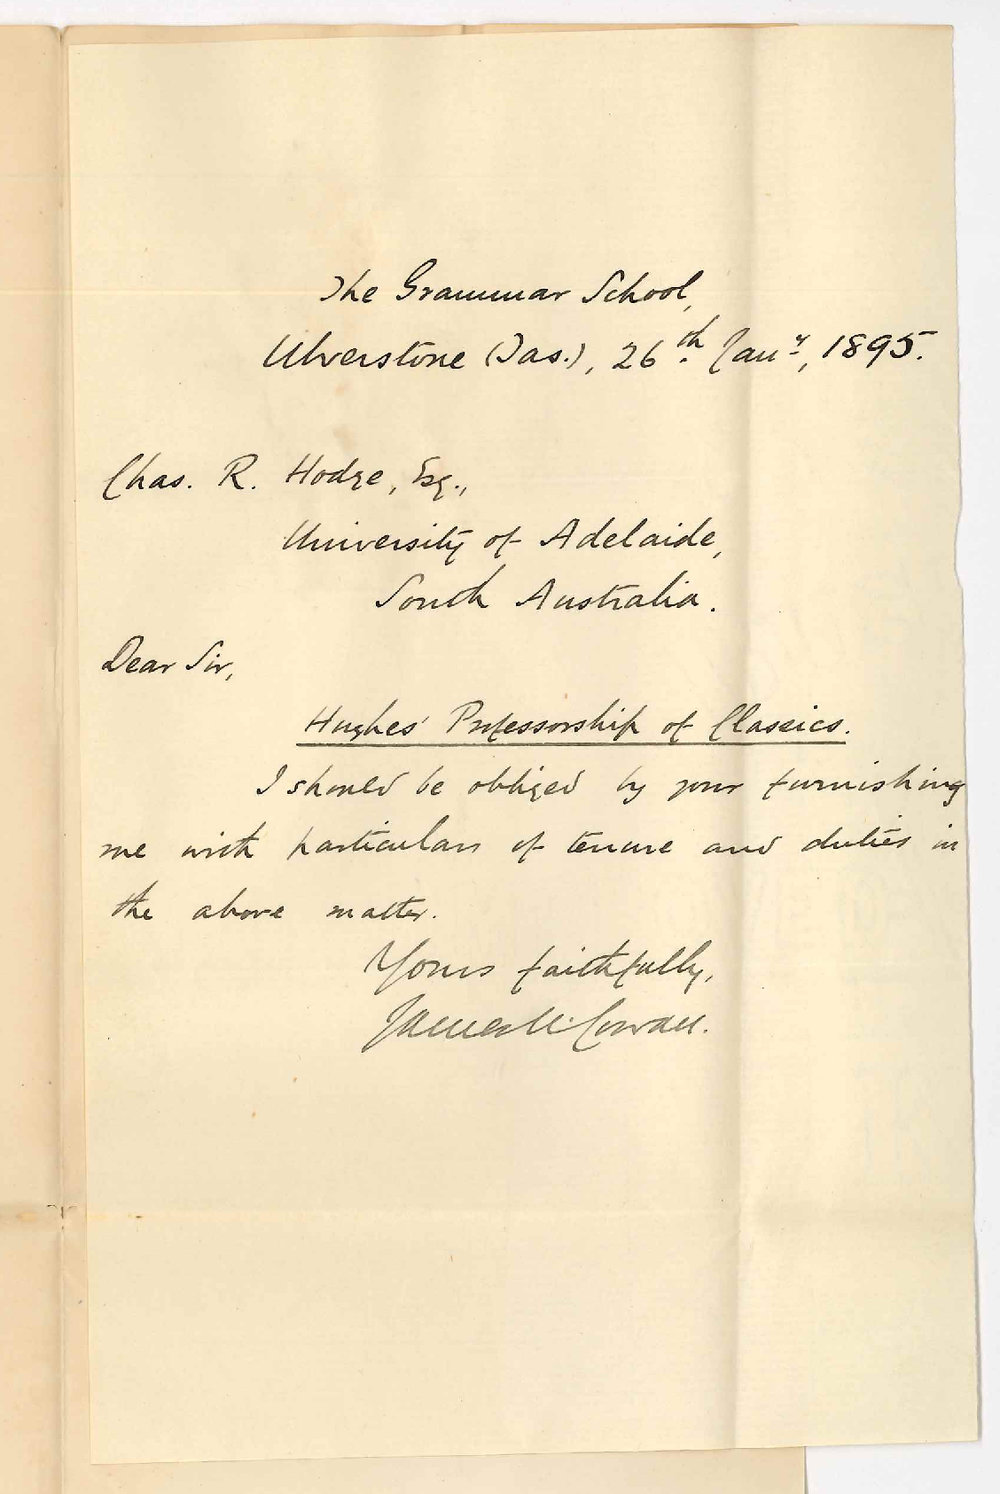 The Grammar School,
Ulverstone (Tas.), 26th Jany, 1895.
Chas. R. Hodge, Esq.,
University of Adelaide,
South Australia.
Dear Sir,
Hughes' Professorship of Classics.
I should be obliged by your furnishing
me with particulars of tenure and duties in
the above matter.
Yours faithfully,
James M. Cowan.